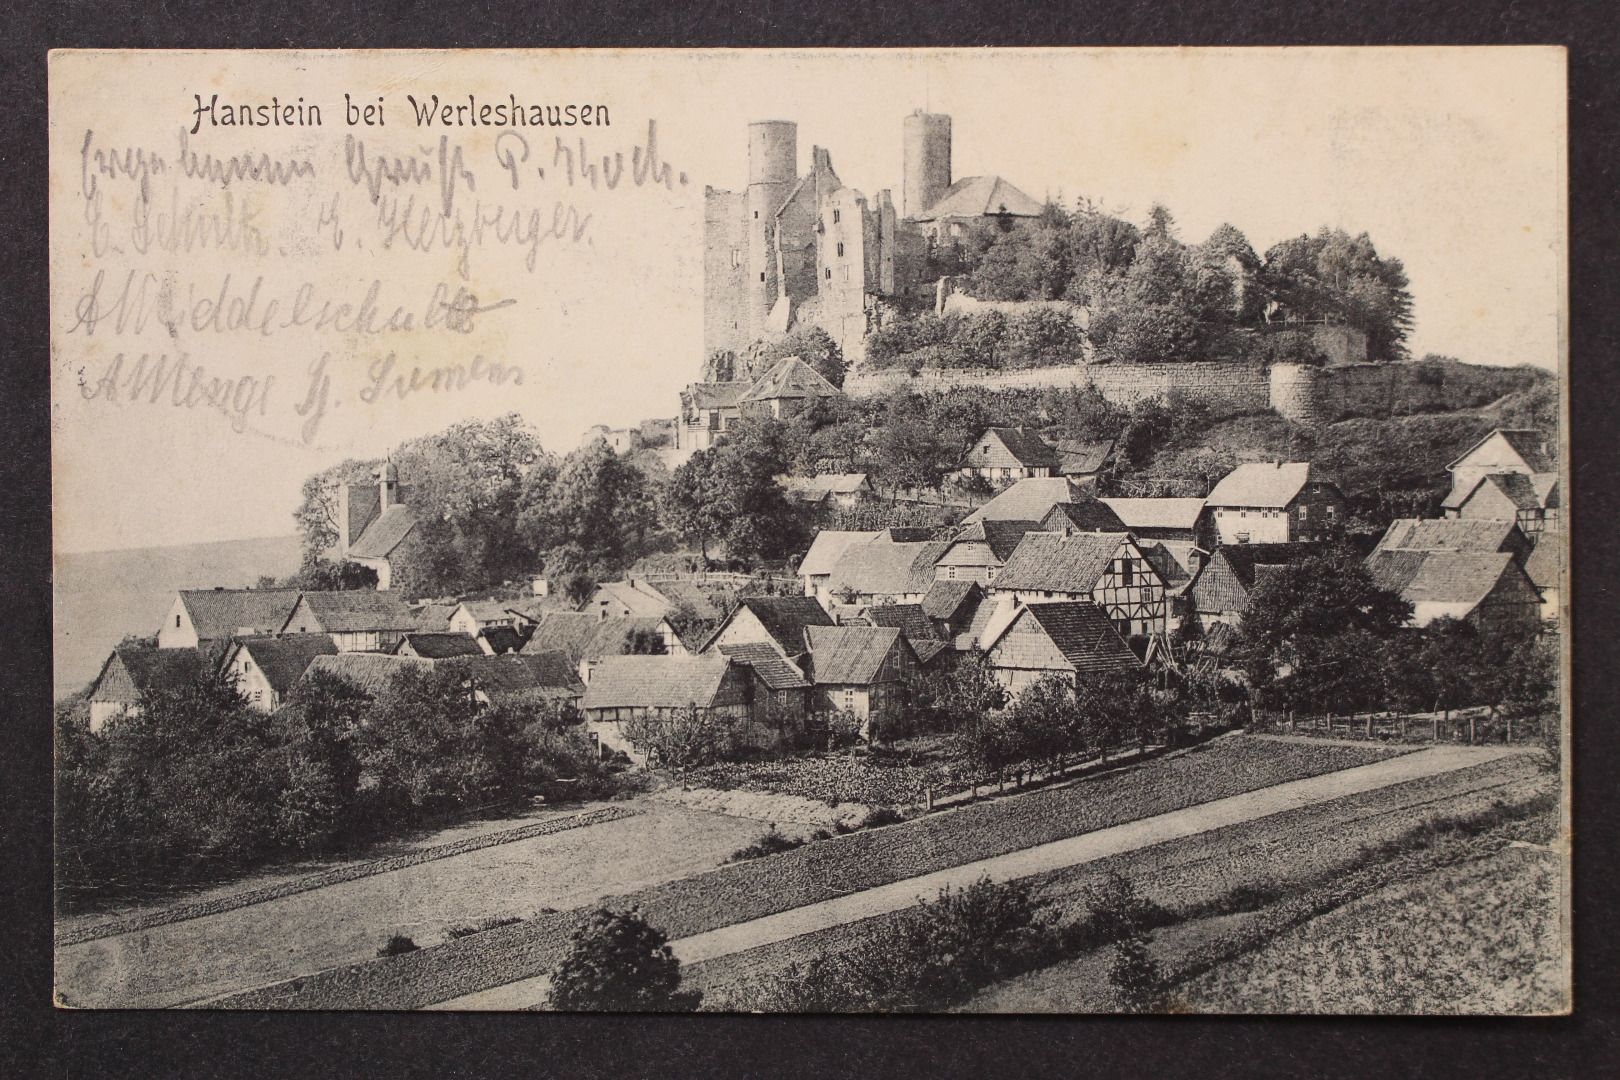 Hanstein bei Werleshausen
Gruß P. Koch.
E. Schultz. E. Herzberger.
A Middelschulte
A Menge H. Siemens